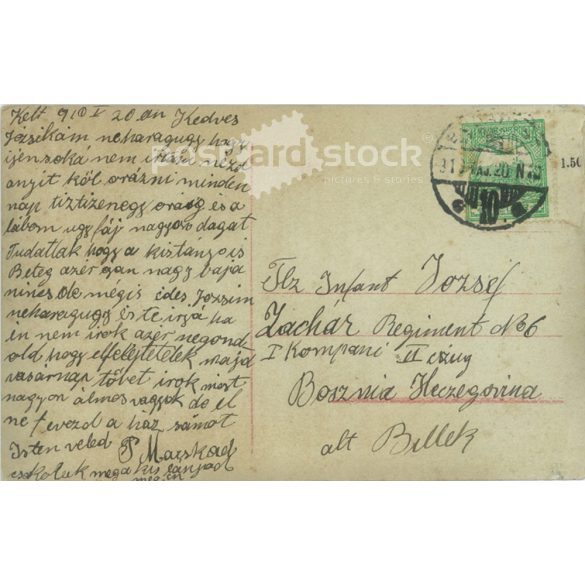 Kelt 910 V 20 án Kedves
Józsikám neharagugy hogy
ijenzoká nem
anyit köl orázni minden
nap tiztizenegy óráig és a
lábom ugy fáj nagyon dagat
Tudatlak hogy a kistányois
Beteg azér gan nagy baja
nincs de mégis édes Józsim
neharagugy és te irjá ha
én nem irok azér negond
old hogy elfelejtetélek majd
vasárnap tövet irok mort
nagyon álmos vagyok de el
ne tevezd a ház sámot
Isten veled Mariskad
csokoluk meg a kis lányod
meg én
postcard stock ©
pictures & stories
1.50
10
Infant Jozsef
Zachár Regiment No 6
I Kompani II czug
Bosznia Herczegovina
alt Billek